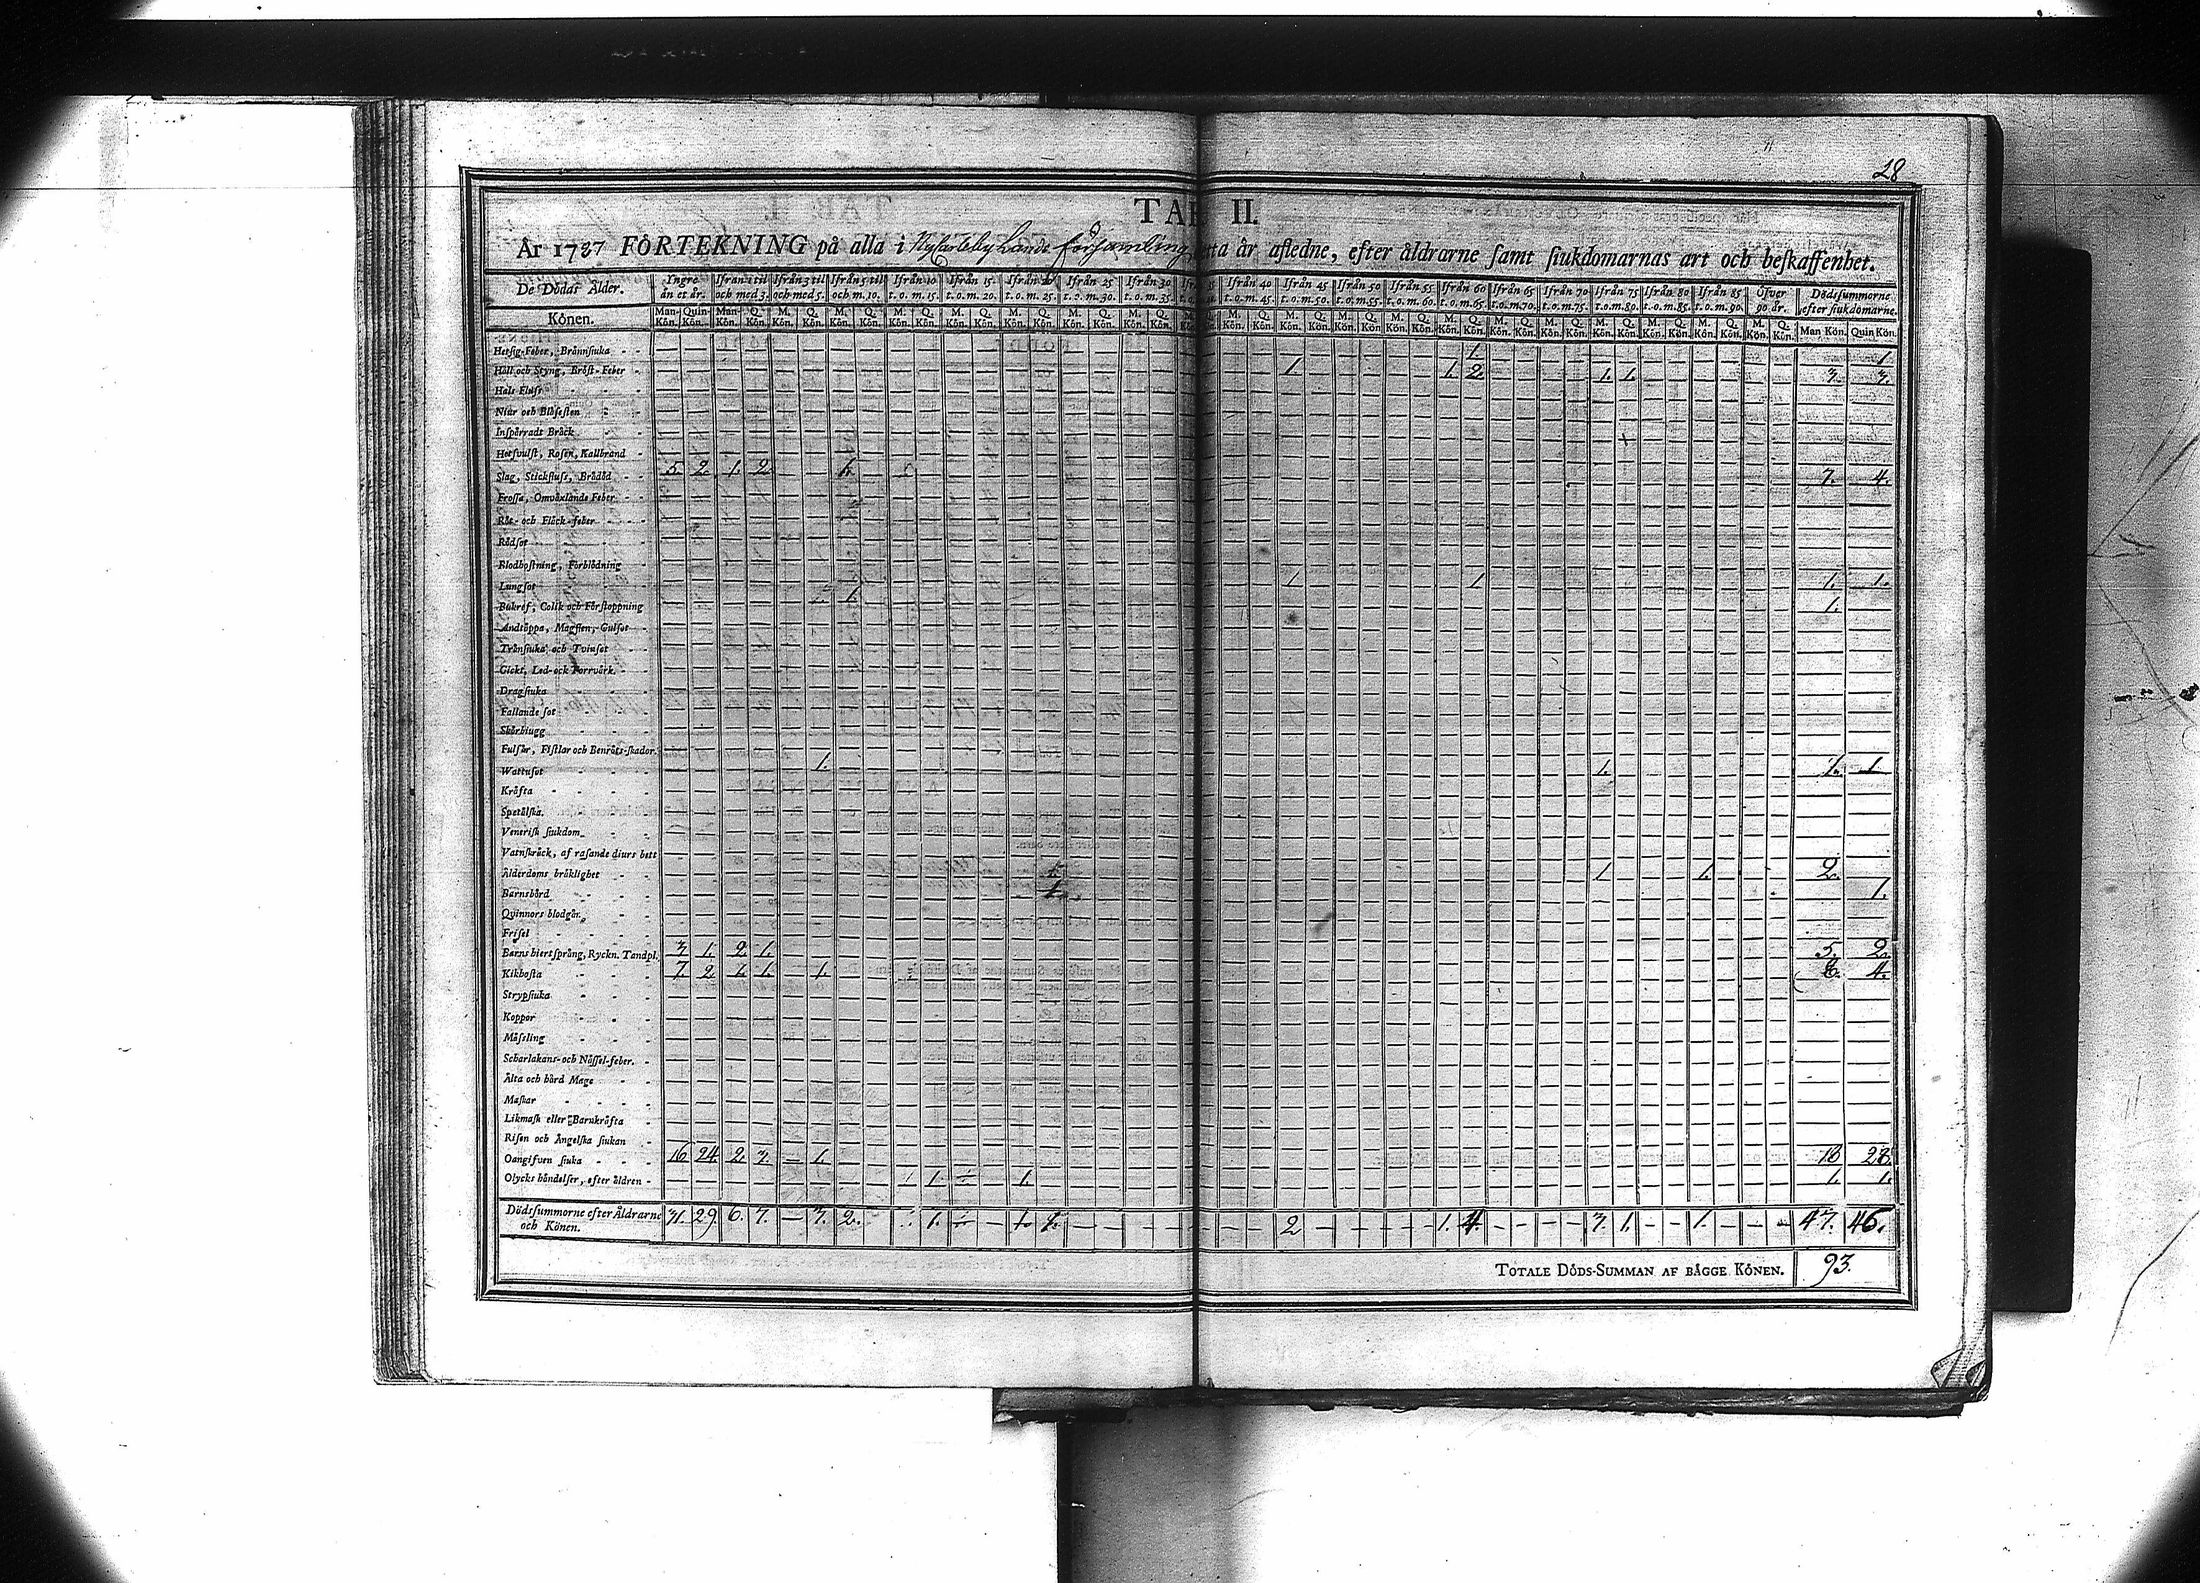 28
TAB II.
År 1787 FÖRTEKNING på alla i NyCarleby Lands församling detta år afledne, efter åldrarne samt siukdomarnas art och beskaffenhet.
De Dödas Ålder. Yngre än et år. Ifrån 1 til och med 3. Ifrån 3 til och med 5. Ifrån 5 til och m. 10. Ifrån 10 t. o. m. 15. Ifrån 15 t. o. m. 20. Ifrån 20 t. o. m. 25. Ifrån 25 t. o. m. 30. Ifrån 30 t. o. m. 35. Ifrån 40 t. o. m. 45. Ifrån 45 t. o. m. 50. Ifrån 50 t. o. m. 55. Ifrån 55 t. o. m. 60. Ifrån 60 t. o. m. 65. Ifrån 65 t. o. m. 70. Ifrån 70 t. o. m. 75. Ifrån 75 t. o. m. 80. Ifrån 80 t. o. m. 85. Ifrån 85 t. o. m. 90. Öfver 90 år. Dödssummorne efter siukdomarne.
Könen. Man-Kön. Quin-Kön. Man-Kön. Q. Kön. M. Kön. Q. Kön. M. Kön. Q. Kön. Man Kön. Quin Kön.
Hetsig-Feber, Brännsiuka 1. 1
Håll och Styng, Bröst-Feber 1 1. 2 1. 1. 3. 3.
Hals-Fluss
Niur och Blåsesten
Inspärradt Bråck
Hetsvulst, Rosen, Kallbrand
Slag, Stickfluss, Brådöd 5. 2. 1. 2. 1. 7. 4.
Frossa, Omväxlande Feber
Röt- och Fläck-feber
Rödsot
Blodhostning, Förblödning
Lungsot 1 1 1. 1.
Bukref, Colik och Förstoppning 1. 1.
Andtäppa, Magsten, Gulsot
Tränsiuka och Tvinsot
Gickt, Led- och Torrvärk.
Dragsiuka
Fallande sot
Skörbiugg
Fulsår, Fistlar och Benröts-skador.
Wattusot 1. 1. 1. 1
Kräfta
Spetälska.
Venerisk siukdom
Vatnskräck, af rasande diurs bett
Ålderdoms bräklighet 1 1. 2.
Barnsbörd 1. 1.
Qvinnors blodgån.
Frisel
Barns hiertsprång, Ryckn. Tandpl. 3 1. 2. 1. 5. 2.
Kikhosta 7. 2 1. 1. 1. 8. 4.
Strypsiuka
Koppor
Mässling
Scharlakans- och Nässel-feber.
Älta och hård Mage
Maskar
Likmask eller Barnkräfta
Risen och Ängelska siukan
Oangifven siuka 16 24. 2. 3. 1. 18 28.
Olycks händelser, efter åldren 1. 1. 1. 1.
Dödssummorne efter Åldrarne och Könen. 31. 29. 6. 7. 3. 2. 1. 1. 1. 2 1. 4. 3. 1. 1. 47. 46.
TOTALE DÖDS-SUMMAN AF BÄGGE KÖNEN. 93.